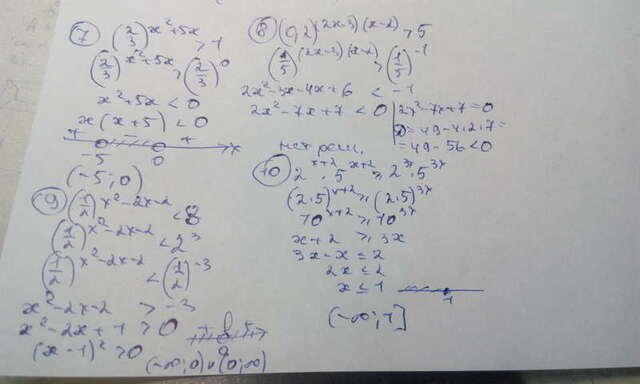 ⑦ (2/3)^(x²+5x) > 1
(2/3)^(x²+5x) > (2/3)^0
x²+5x < 0
x(x+5) < 0
+ - + x
-5 0
(-5; 0)
⑧ (0,2)^((2x-3)(x-2)) > 5
(1/5)^((2x-3)(x-2)) > (1/5)^-1
2x²-3x-4x+6 < -1
2x²-7x+7 < 0
2x²-7x+7=0
D=49-4·2·7=
=49-56<0
нет реш.
⑨ (1/2)^(x²-2x-2) < 8
(1/2)^(x²-2x-2) < 2³
(1/2)^(x²-2x-2) < (1/2)^-3
x²-2x-2 > -3
x²-2x+1 > 0
(x-1)² > 0
(-∞; 0) ∪ (0; ∞)
⑩ 2^(x+2) · 5^(x+2) ≥ 2^(3x) · 5^(3x)
(2·5)^(x+2) ≥ (2·5)^(3x)
10^(x+2) ≥ 10^(3x)
x+2 ≥ 3x
3x-x ≤ 2
2x ≤ 2
x ≤ 1
1
(-∞; 1]